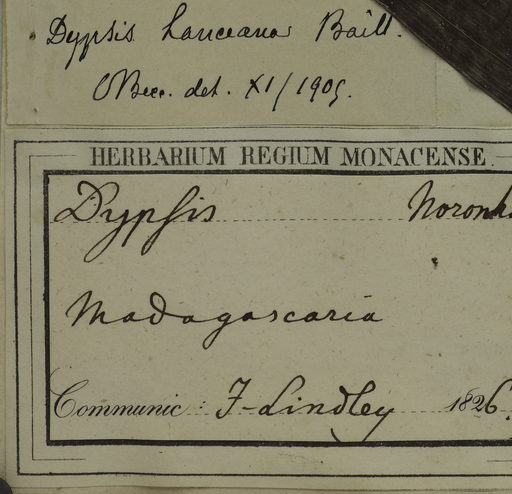 Dypsis lanceana Baill.
OBecc. det. XI/1905.
HERBARIUM REGIUM MONACENSE.
Dypsis Noronh
Madagascaria
Communic: J-Lindley 1826.